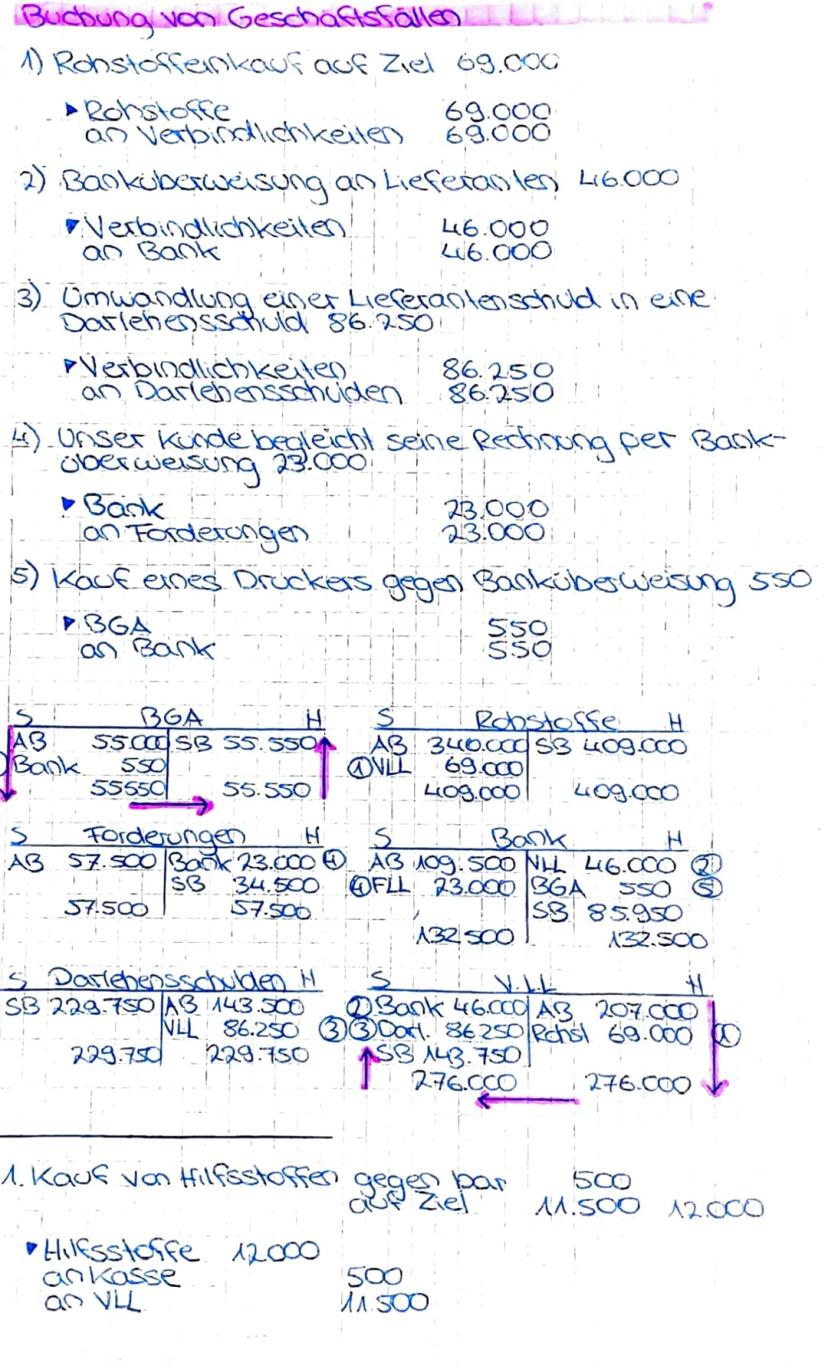 Buchung von Geschäftsfällen
1) Rohstoffeinkauf auf Ziel 69.000
▸ Rohstoffe 69.000
an Verbindlichkeiten 69.000
2) Banküberweisung an Lieferanten 46.000
▸ Verbindlichkeiten 46.000
an Bank 46.000
3) Umwandlung einer Lieferantenschuld in eine
Darlehensschuld 86.250
▸ Verbindlichkeiten 86.250
an Darlehensschulden 86.250
4) Unser Kunde begleicht seine Rechnung per Bank-
überweisung 23.000
▸ Bank 23.000
an Forderungen 23.000
5) Kauf eines Druckers gegen Banküberweisung 550
▸ BGA 550
an Bank 550
S BGA H
AB 55.000 SB 55.550
Bank 550
55550 55.550
S Rohstoffe H
AB 340.000 SB 409.000
① VLL 69.000
409.000 409.000
S Forderungen H
AB 57.500 Bank 23.000 ④
SB 34.500
57.500 57.500
S Bank H
AB 109.500 VLL 46.000 ②
④ FLL 23.000 BGA 550 ⑤
SB 85.950
132.500 132.500
S Darlehensschulden H
SB 229.750 AB 143.500
VLL 86.250 ③
229.750 229.750
S V.LL H
② Bank 46.000 AB 207.000
③ Darl. 86.250 Rohst 69.000 ①
SB 143.750
276.000 276.000
1. Kauf von Hilfsstoffen gegen bar 500
auf Ziel 11.500 12.000
▸ Hilfsstoffe 12000
an Kasse 500
an VLL 11.500